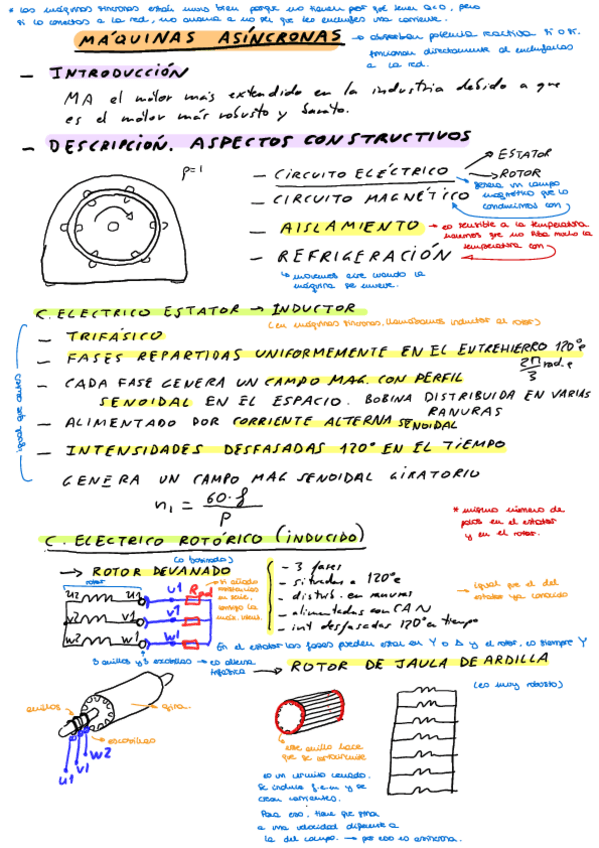 * las máquinas síncronas están muy bien porque no tienen por qué tener a=0, pero
si lo conectas a la red, no arranca a no ser que les enchufes una corriente.
MÁQUINAS ASÍNCRONAS → absorben potencia reactiva sí o sí.
funcionan directamente al enchufarlas
a la red.
- INTRODUCCIÓN
MA el motor más extendido en la industria debido a que
es el motor más robusto y barato.
- DESCRIPCION. ASPECTOS CONSTRUCTIVOS
p=1
- CIRCUITO ELÉCTRICO → ESTATOR
→ ROTOR
- CIRCUITO MAGNÉTICO
genera un campo
magnético que lo
conducimos con
- AISLAMIENTO → es sensible a la temperatura.
hacemos que no suba mucho la
temperatura con
- REFRIGERACIÓN
↳ movemos aire cuando la
máquina se mueve.
C. ELECTRICO ESTATOR → INDUCTOR
(en máquinas síncronas, llamábamos inductor al rotor)
igual que antes
- TRIFÁSICO
- FASES REPARTIDAS UNIFORMEMENTE EN EL ENTREHIERRO 120°e
2π/3 rad.e
- CADA FASE GENERA UN CAMPO MAG. CON PERFIL
SENOIDAL EN EL ESPACIO. BOBINA DISTRIBUIDA EN VARIAS
RANURAS
- ALIMENTADO POR CORRIENTE ALTERNA SENOIDAL
- INTENSIDADES DESFASADAS 120° EN EL TIEMPO
GENERA UN CAMPO MAG SENOIDAL GIRATORIO
n1 = 60·f / P
* mismo número de
polos en el estator
y en el rotor.
C. ELECTRICO ROTÓRICO (INDUCIDO)
(o bobinado)
→ ROTOR DEVANADO
- 3 fases
- situadas a 120°e
- distrib. en ranuras
- alimentadas con CAN
- int desfasadas 120° en tiempo
→ igual que el del
estator ya conocido
rotor
u2 u1 u1 Rad
v1 v1
w2 w1 w1
si añado
resistencias
en serie,
En el estator las fases pueden estar en Y o Δ y el rotor, es siempre Y
3 anillos y 3 escobillas → es alterna
trifásica
→ ROTOR DE JAULA DE ARDILLA
(es muy robusto)
anillos
gira.
escobillas
u1 v1 w2
este anillo hace
que se cortocircuite
es un circuito cerrado.
Se induce f.e.m y se
crean corrientes.
Para eso, tiene que girar
a una velocidad diferente a
la del campo. → por eso es asíncrona.